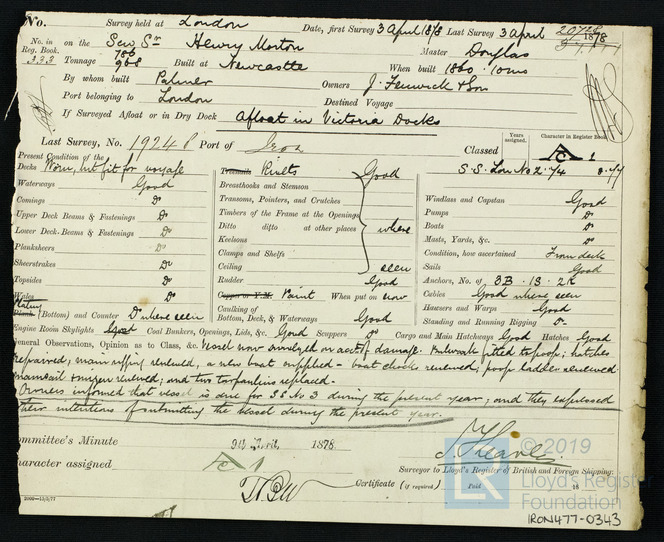 No. Survey held at London Date, first Survey 3 April 1878 Last Survey 3 April 1878
20728
No. in Reg. Book. on the Scw Sr Henry Morton Master Douglas
333 Tonnage 786 968 Built at Newcastle When built 1860 . 10 mo
By whom built Palmer Owners J. Fenwick & Son
Port belonging to London Destined Voyage
If Surveyed Afloat or in Dry Dock Afloat in Victoria Docks
Last Survey, No. 19248 Port of Iron Classed
Years assigned. Character in Register Book.
A 1
S.S. Lon No 2. 74 8.77
Present Condition of the
Decks Worn, but fit for voyage
Waterways Good
Comings Do
Upper Deck Beams & Fastenings Do
Lower Deck Beams & Fastenings Do
Planksheers Do
Sheerstrakes Do
Topsides Do
Wales Do
Plating Plank (Bottom) and Counter Do where seen
Treenails Rivets Good
Breasthooks and Stemson
Transoms, Pointers, and Crutches
Timbers of the Frame at the Openings
Ditto ditto at other places where
Keelsons
Clamps and Shelfs
Ceiling seen
Rudder Good
Copper or Y.M. Paint When put on now
Caulking of Bottom, Deck, & Waterways Good
Windlass and Capstan Good
Pumps Do
Boats Do
Masts, Yards, &c. Do
Condition, how ascertained From deck
Sails Good
Anchors, No. of 3B . 1S . 2K
Cables Good where seen
Hawsers and Warps Good
Standing and Running Rigging Do
Engine Room Skylights Good Coal Bunkers, Openings, Lids, &c. Good Scuppers Do Cargo and Main Hatchways Good Hatches Good
General Observations, Opinion as to Class, &c. Vessel now surveyed on acct of damage. Bulwark fitted to poop; hatches
repaired; main rigging renewed, a new boat supplied - boat chocks renewed; poop ladder renewed
mainsail & mizen renewed; and two tarpaulins replaced.
Owners informed that vessel is due for SS No 3 during the present year; and they expressed
their intentions of submitting the vessel during the present year.
Committee's Minute 9th April 1878
Character assigned A 1
Surveyor to Lloyd's Register of British and Foreign Shipping.
Certificate (if required) Paid 18
2000—13/3/77
© 2019
Lloyd's Register
Foundation
LR
IRON477-0343